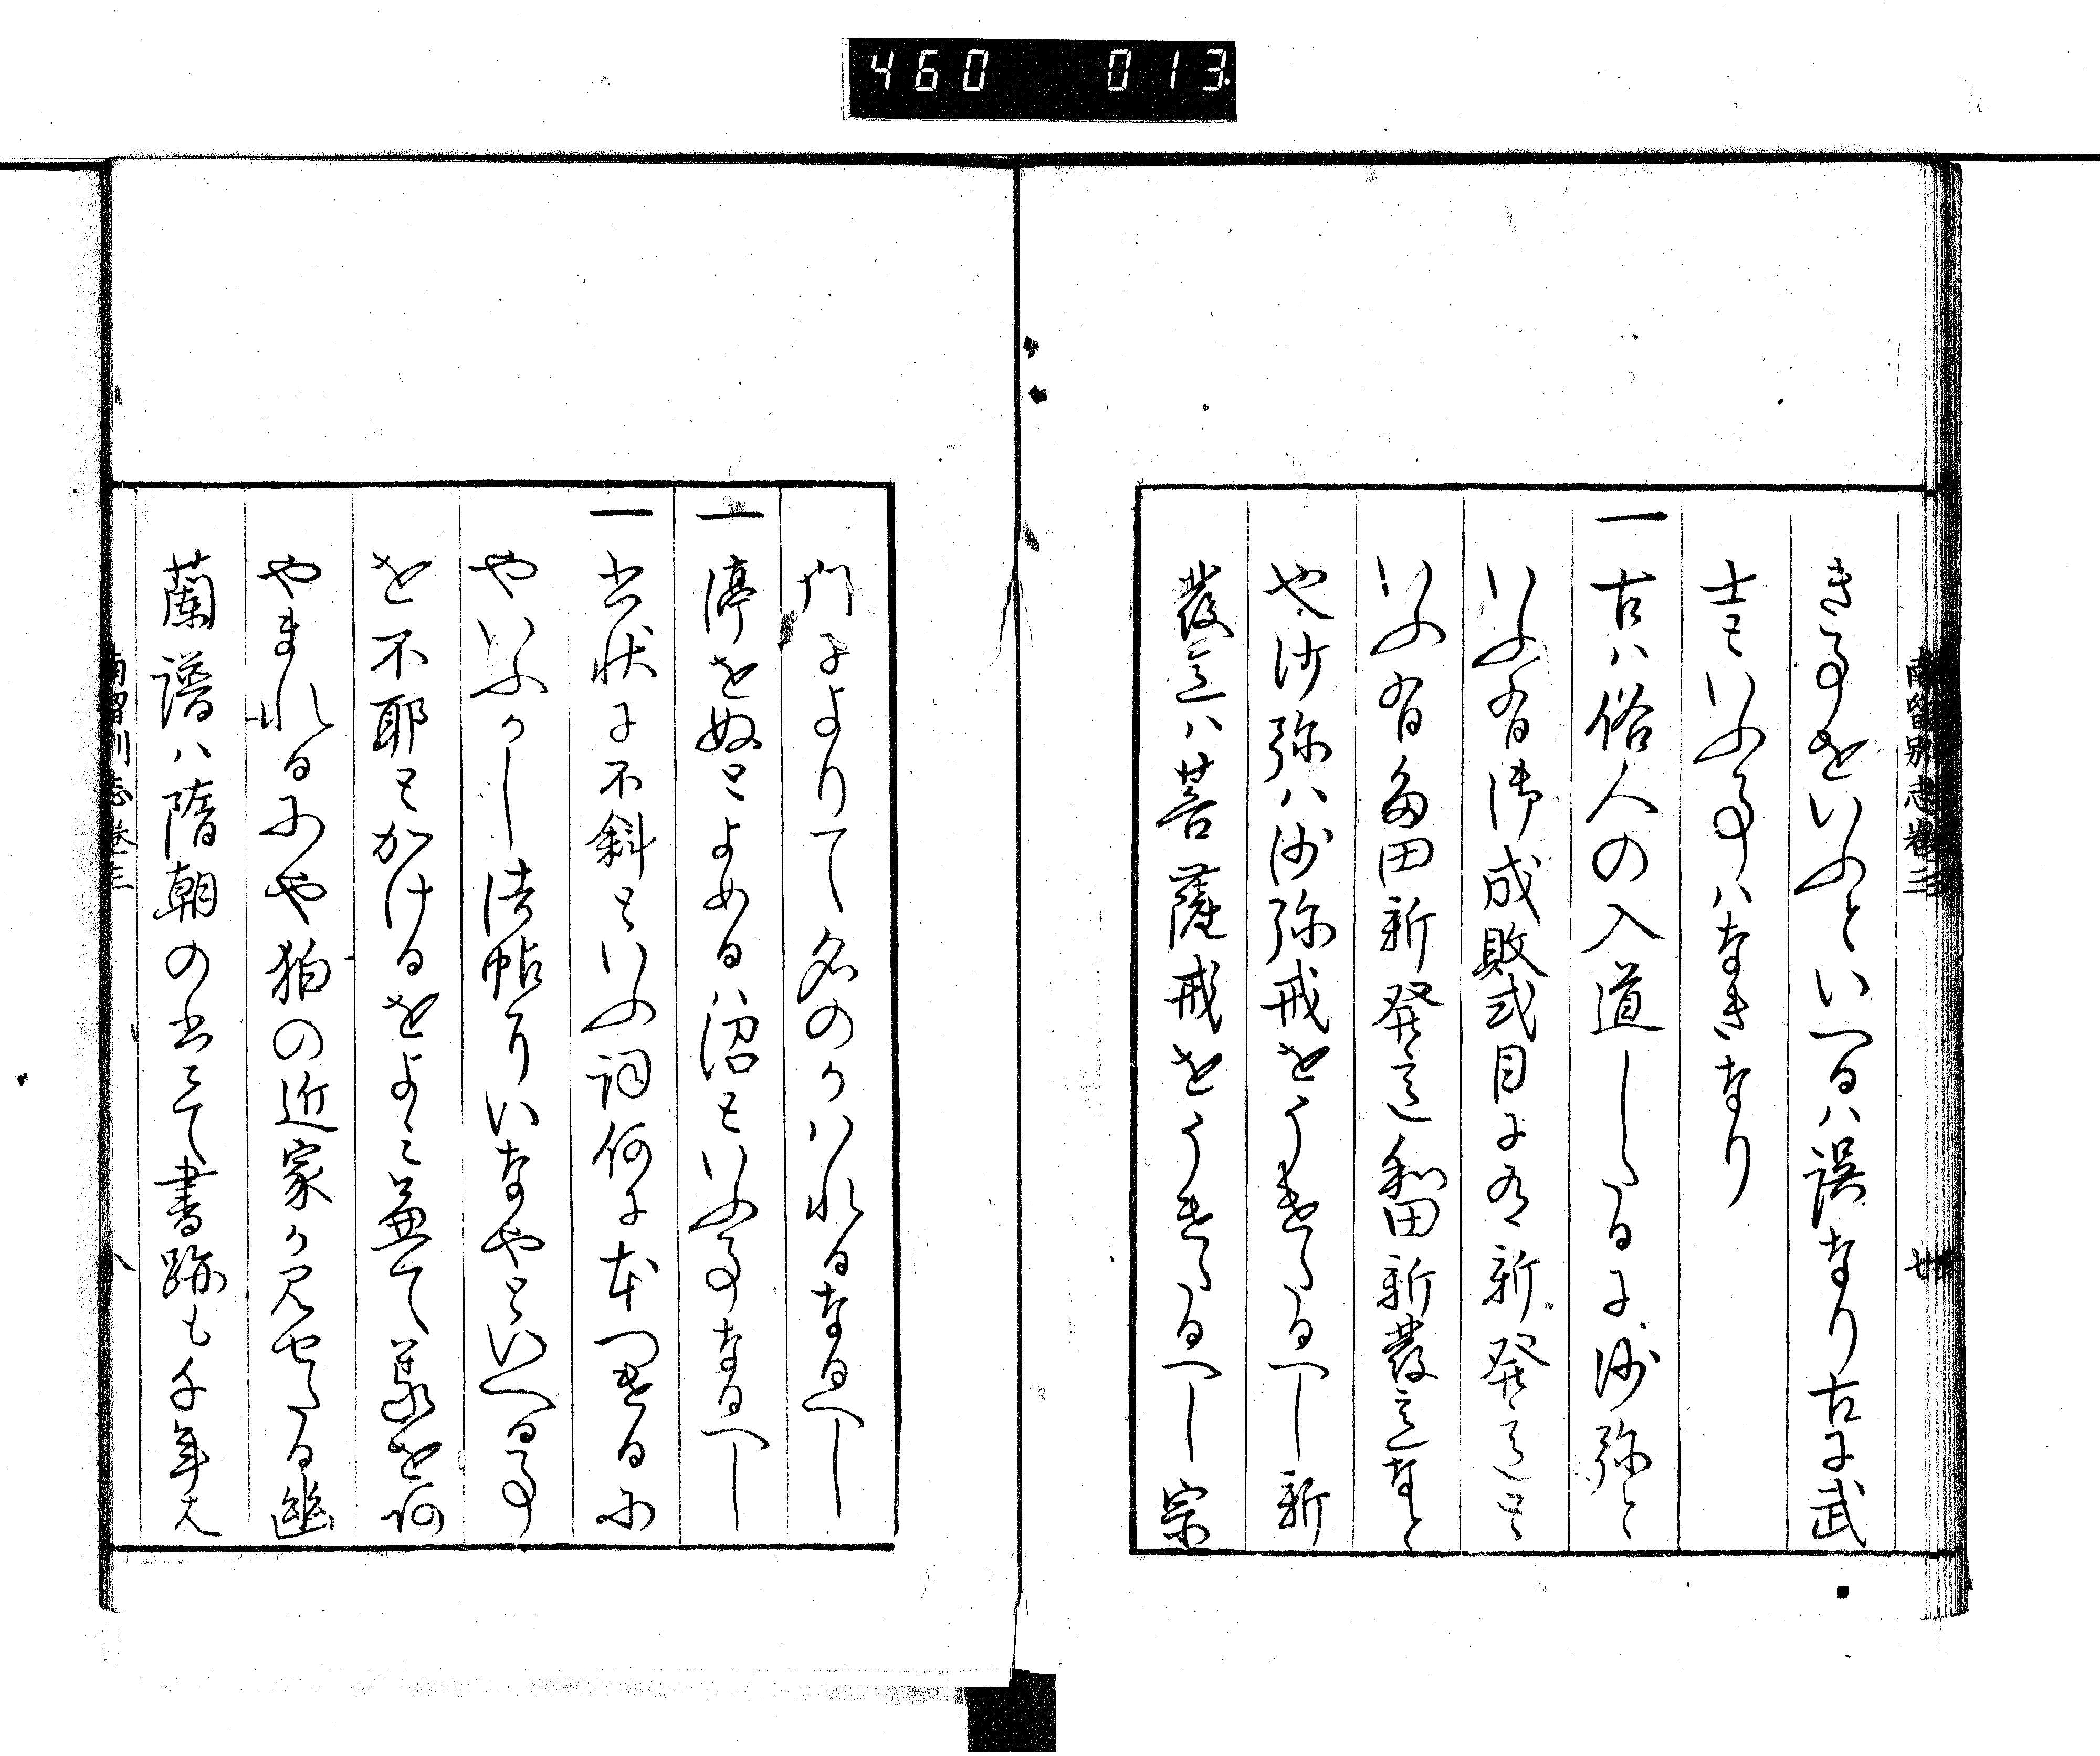 460 013
南留別志卷三
廿
きる事をいふといへるハ誤なり古に武
士といふ事ハなきなり
一古ハ俗人の入道したるに沙弥と
いふ有御成敗式目に又新発意と
いふ有多田新発意和田新發意なと
や沙弥ハ沙弥戒をうけたるへし新
發意ハ菩薩戒をうけたるへし宗
門によりて名のかハれるなるへし
一渟をぬとよめるハ沼といふ事なるへし
一书状に不斜といふ詞何に本つけるにか
やいふかし法帖にいなやといへる事
を不耶とかけるをよく兼て義を何
やまれるにや狛の近家か見せたる幽
蘭譜ハ隋朝の书にて書跡も千年え
南留別志卷三